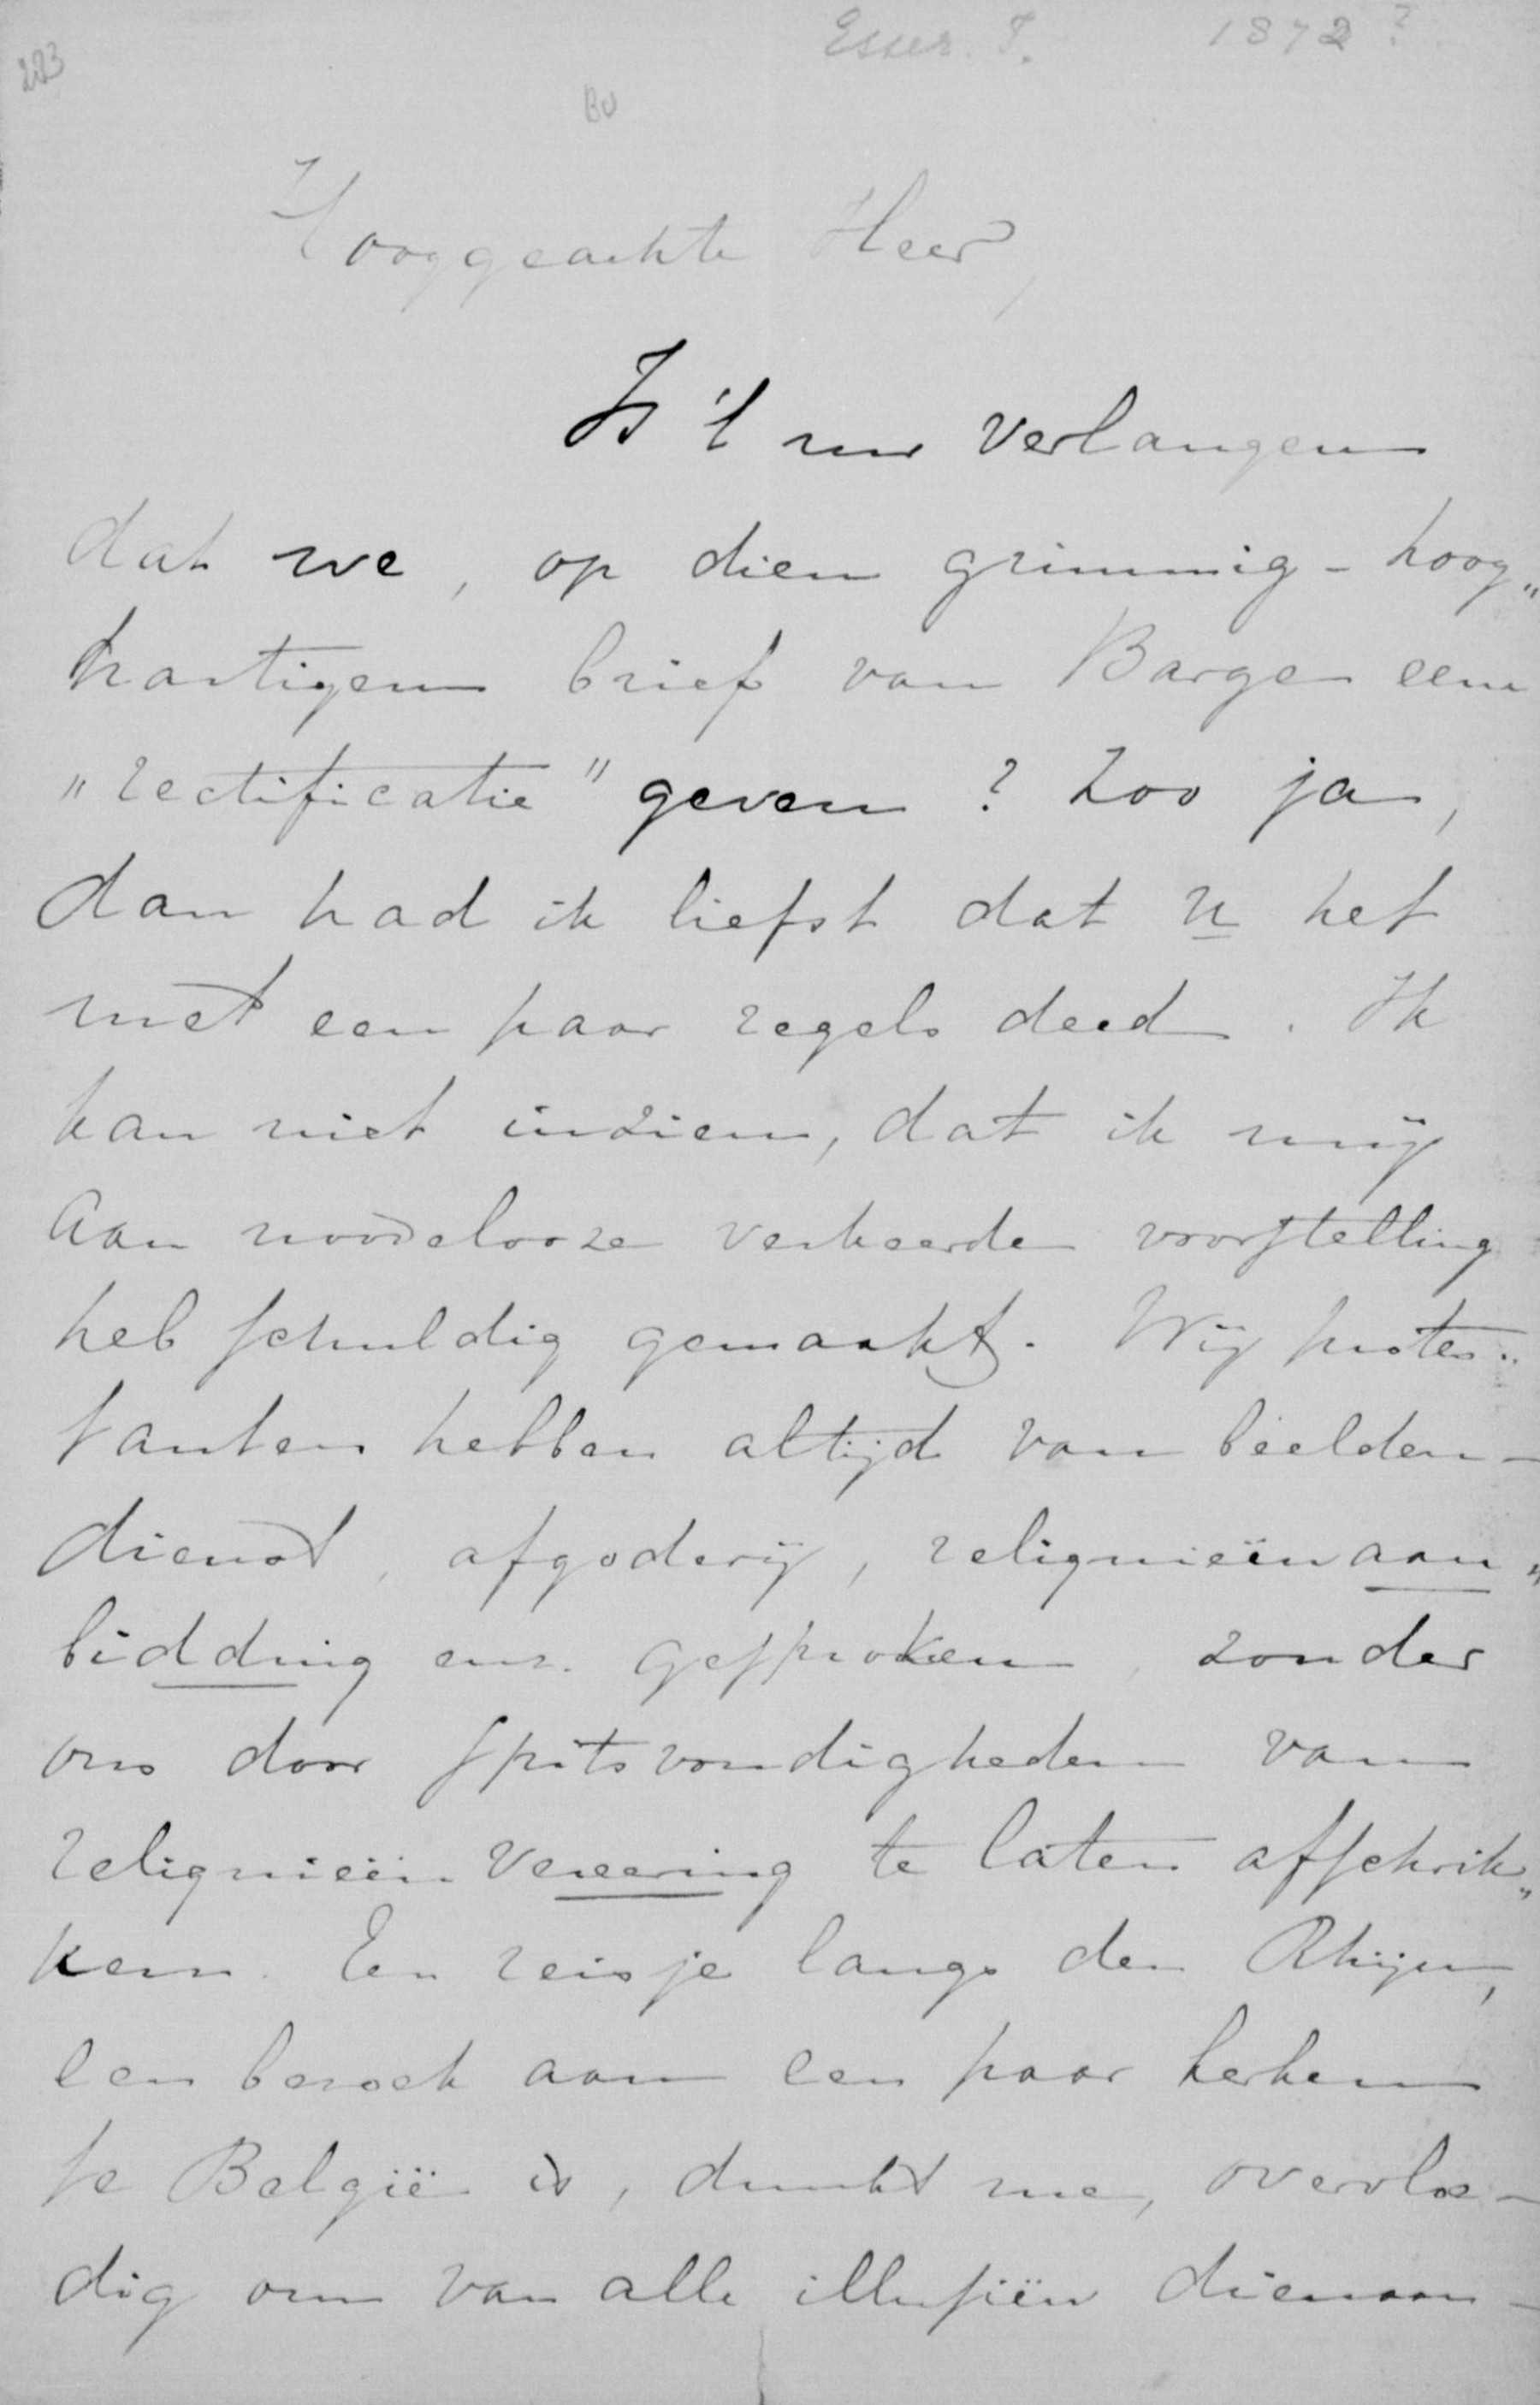 Esser. I. 1872?
223
BU
Hooggeachte Heer,
Is 't uw verlangen
dat we, op dien grimmig-hoog„
hartigen brief van Barge een
„rectificatie" geven? Zoo ja,
dan had ik liefst dat u het
met een paar regels deed. Ik
kan niet inzien, dat ik mij
aan noodelooze verkeerde voorstelling
heb schuldig gemaakt. Wij protes„
tanten hebben altijd van beelden-
dienst, afgoderij, reliquieënaan„
bidding enz. gesproken, zonder
ons door spitsvondigheden van
reliquieën vereering te laten afschrik„
ken. Een reisje langs den Rhijn,
een bezoek aan een paar kerken
te België is, dunkt me, overvloe-
dig om van alle illusiën dienaan-